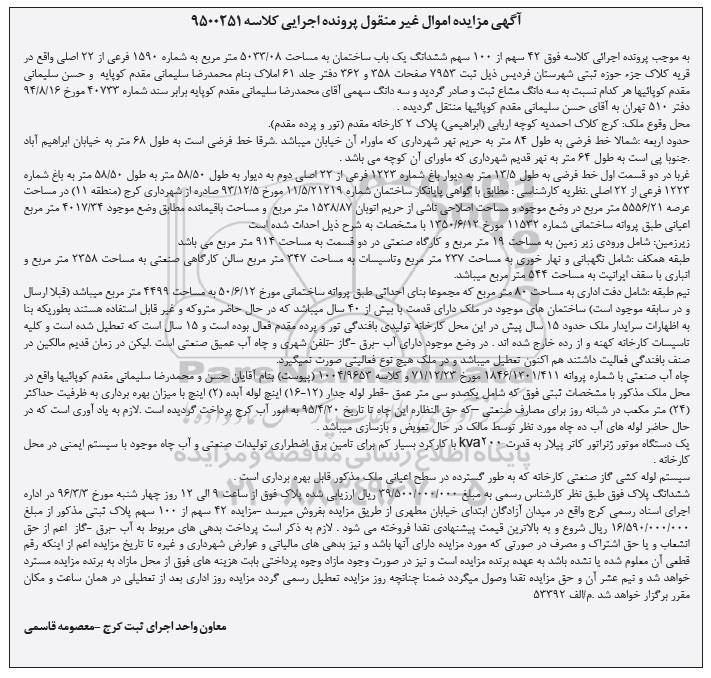 آگهی مزایده اموال غیر منقول پرونده اجرایی کلاسه ۹۵۰۰۲۵۱
به موجب پرونده اجرائی کلاسه فوق ۴۲ سهم از ۱۰۰ سهم ششدانگ یک باب ساختمان به مساحت ۵۰۳۳/۰۸ متر مربع به شماره ۱۵۹۰ فرعی از ۲۲ اصلی واقع در
قریه کلاک جزء حوزه ثبتی شهرستان فردیس ذیل ثبت ۷۹۵۳ صفحات ۳۵۸ و ۳۶۲ دفتر جلد ۶۱ املاک بنام محمدرضا سلیمانی مقدم کوپایه و حسن سلیمانی
مقدم کوپائیها هر کدام نسبت به سه دانگ مشاع ثبت و صادر گردید و سه دانگ سهمی آقای محمدرضا سلیمانی مقدم کوپایه برابر سند شماره ۴۰۷۳۳ مورخ ۹۴/۸/۱۶
دفتر ۵۱۰ تهران به آقای حسن سلیمانی مقدم کوپائیها منتقل گردیده .
محل وقوع ملک: کرج کلاک احمدیه کوچه اربابی (ابراهیمی) پلاک ۲ کارخانه مقدم (تور و پرده مقدم).
حدود اربعه :شمالا خط فرضی به طول ۸۴ متر به حریم نهر شهرداری که ماوراء آن خیابان میباشد .شرقا خط فرضی است به طول ۶۸ متر به خیابان ابراهیم آباد
.جنوبا پی است به طول ۶۴ متر به نهر قدیم شهرداری که ماورای آن کوچه می باشد .
غربا در دو قسمت اول خط فرضی به طول ۱۲/۵ متر به دیوار باغ شماره ۱۲۲۳ فرعی از ۲۲ اصلی دوم به دیوار به طول ۵۸/۵۰ متر به طول ۵۸/۵۰ متر به باغ شماره
۱۲۲۳ فرعی از ۲۲ اصلی .نظریه کارشناسی : مطابق با گواهی پایانکار ساختمان شماره ۱۱/۵/۲۱۲۱۹ مورخ ۹۳/۱۲/۵ صادره از شهرداری کرج (منطقه ۱۱) در مساحت
عرصه ۵۵۵۶/۲۱ متر مربع در وضع موجود و مساحت اصلاحی ناشی از حریم اتوبان ۱۵۳۸/۸۷ متر مربع و مساحت باقیمانده مطابق وضع موجود ۴۰۱۷/۳۴ متر مربع
اعیانی طبق پروانه ساختمانی شماره ۱۱۵۳۲ مورخ ۱۳۵۰/۶/۱۲ با مشخصات به شرح ذیل احداث شده است
زیرزمین: شامل ورودی زیر زمین به مساحت ۱۹ متر مربع و کارگاه صنعتی در دو قسمت به مساحت ۹۱۴ متر مربع می باشد
طبقه همکف :شامل نگهبانی و نهار خوری به مساحت ۲۳۷ متر مربع وتاسیسات به مساحت ۳۴۷ متر مربع سالن کارگاهی صنعتی به مساحت ۲۳۵۸ متر مربع و
انباری با سقف ایرانیت به مساحت ۵۴۴ متر مربع میباشد.
نیم طبقه :شامل دفت اداری به مساحت ۸۰ متر مربع که مجموعا بنای احداثی طبق پروانه ساختمانی مورخ ۵۰/۶/۱۲ به مساحت ۴۴۹۹ متر مربع میباشد (قبلا ارسال
و در سابقه موجود است) ساختمان های موجود در ملک دارای قدمت با بیش از ۴۰ سال میباشد که در حال حاضر متروکه و غیر قابل استفاده هستند بطوریکه بنا
به اظهارات سرایدار ملک حدود ۱۵ سال پیش در این محل کارخانه تولیدی بافندگی تور و پرده مقدم فعال بوده است و ۱۵ سال است که تعطیل شده است و کلیه
تاسیسات کارخانه کهنه و از رده خارج شده اند . در وضع موجود دارای آب –برق –گاز –تلفن شهری و چاه آب عمیق صنعتی است .لیکن در زمان قدیم مالکین در
صنف بافندگی فعالیت داشتند هم اکنون تعطیل میباشد و در ملک هیچ نوع فعالیتی صورت نمیگیرد.
چاه آب صنعتی با شماره پروانه ۱۸۴۶/۱۳۰۱/۴۱۱ مورخ ۷۱/۱۲/۲۳ و کلاسه ۱۰۰۴/۹۶۵۳ (پیوست) بنام آقایان حسن و محمدرضا سلیمانی مقدم کوپائیها واقع در
محل ملک مذکور با مشخصات ثبتی فوق که شامل یکصدو سی متر عمق –قطر لوله جدار (۱۲–۱۶) اینچ لوله آبده (۲) اینچ با میزان بهره برداری به ظرفیت حداکثر
(۲۴) متر مکعب در شبانه روز برای مصارف صنعتی –که حق النظاره این چاه تا تاریخ ۹۵/۴/۲۰ به امور آب کرج پرداخت گردیده است .لازم به یاد آوری است که در
حال حاضر لوله های آب ده چاه مورد نظر توسط مالک در حال تعویض و بازسازی میباشد .
یک دستگاه موتور ژنراتور کاتر پیلار به قدرت kva۲۰۰ با کارکرد بسیار کم برای تامین برق اضطراری تولیدات صنعتی و آب چاه موجود با سیستم ایمنی در محل
کارخانه .
سیستم لوله کشی گاز صنعتی کارخانه که به طور گسترده در سطح اعیانی ملک مذکور قابل بهره برداری است .
ششدانگ پلاک فوق طبق نظر کارشناس رسمی به مبلغ ۳۹/۵۰۰/۰۰۰/۰۰۰ ریال ارزیابی شده پلاک فوق از ساعت ۹ الی ۱۲ روز چهار شنبه مورخ ۹۶/۳/۳ در اداره
اجرای اسناد رسمی کرج واقع در میدان آزادگان ابتدای خیابان مطهری از طریق مزایده بفروش میرسد –مزایده ۴۲ سهم از ۱۰۰ سهم پلاک ثبتی مذکور از مبلغ
۱۶/۵۹۰/۰۰۰/۰۰۰ ریال شروع و به بالاترین قیمت پیشنهادی نقدا فروخته می شود . لازم به ذکر است پرداخت بدهی های مربوط به آب –برق –گاز اعم از حق
انشعاب و یا حق اشتراک و مصرف در صورتی که مورد مزایده دارای آنها باشد و نیز بدهی های مالیاتی و عوارض شهرداری و غیره تا تاریخ مزایده اعم از اینکه رقم
قطعی آن معلوم شده یا نشده باشد به عهده برنده مزایده است و نیز در صورت وجود مازاد وجوه پرداختی بابت هزینه های فوق از محل مازاد به برنده مزایده مسترد
خواهد شد و نیم عشر آن و حق مزایده نقدا وصول میگردد ضمنا چنانچه روز مزایده تعطیل رسمی گردد مزایده روز اداری بعد از تعطیلی در همان ساعت و مکان
مقرر برگزار خواهد شد .م/الف ۵۳۳۹۲
معاون واحد اجرای ثبت کرج –معصومه قاسمی